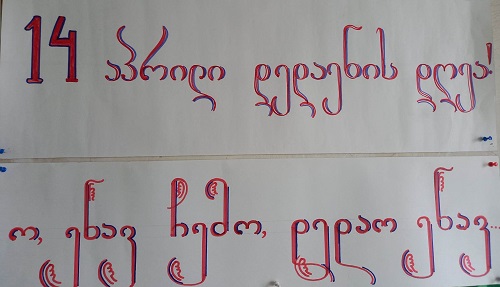 14 აპრილი დედაენის დღეა!
ო, ენავ ჩემო, დედაო ენავ...